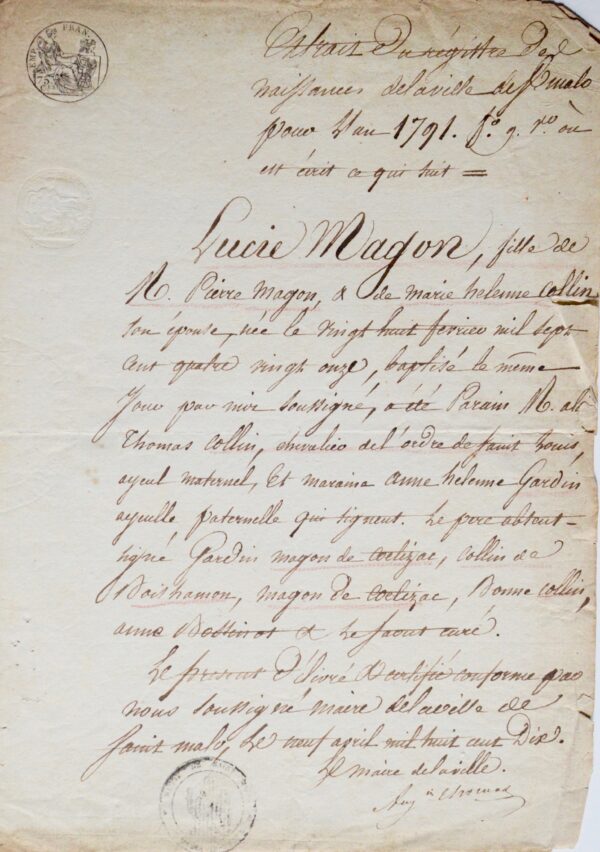 Extrait du régistre des
naissances de la ville de St malo
pour l'an 1791. fo. 9. ro où
est écrit ce qui suit =
Lucie Magon, fille de
M. Pierre Magon, & de marie helenne Collin
son épouse, née le vingt huit fevrier mil sept
cent quatre vingt onze, baptisé le même
Jour par moi soussigné, a été Parain M.
Thomas Collin, chevalier de l'ordre de saint Louis,
ayeul maternel, Et maraine anne helenne Gardin
ayeulle paternelle qui signent. Le pere absent
signé Gardin magon de Coelizac, Collin de
Boishamon, magon de Coelizac, Bonne Collin,
anne & Le saout curé.
Le present délivré & certifié conforme par
nous soussigné maire de la ville de
saint malo, Le neuf april mil huit cent Dix.
Le maire de la ville.